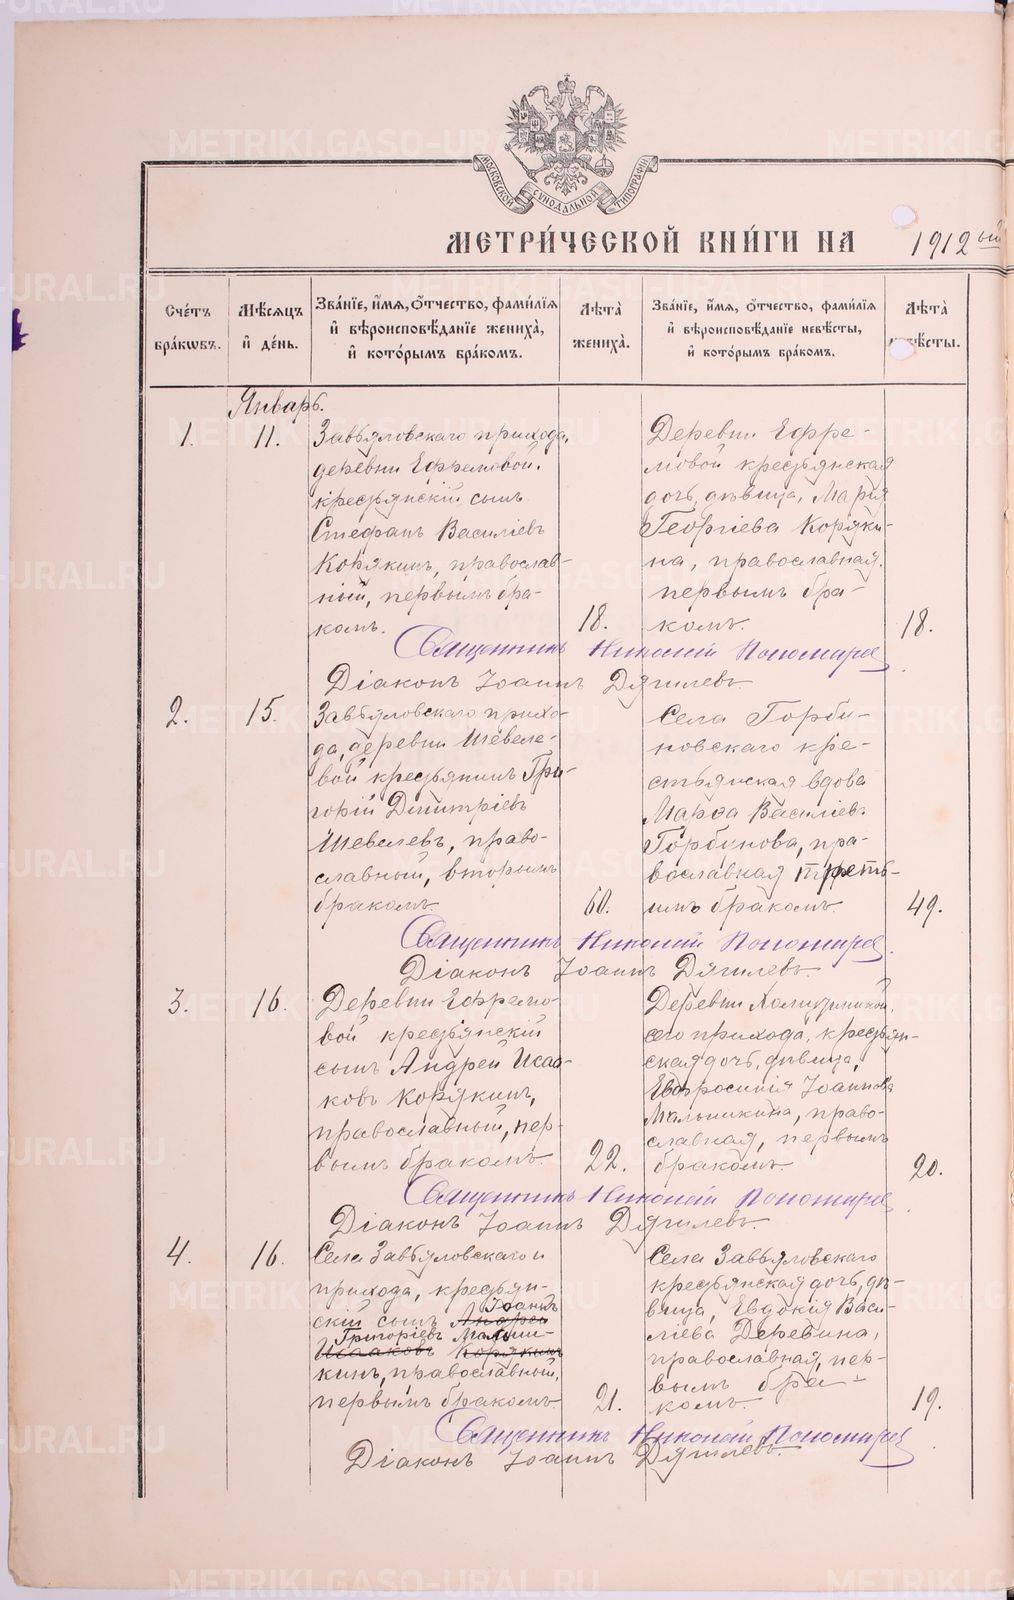 МОСКОВСКОЙ СУНОДАЛЬНОЙ ТИПОГРАФІИ
МЕТРИ́ЧЕСКОЙ КНИ́ГИ НА 1912ый
Сче́тъ бра́кѡвъ.
Мѣ́сяцъ и҆ де́нь.
Зва́нїе, и҆́мя, ѻ҆́тчество, фами́лїя и҆ вѣроисповѣ́данїе жениха̀, и҆ кото́рымъ бра́комъ.
Лѣ́та̀ жениха̀.
Зва́нїе, и҆́мя, ѻ҆́тчество, фами́лїя и҆ вѣроисповѣ́данїе невѣ́сты, и҆ кото́рымъ бра́комъ.
Лѣ́та̀ невѣ́сты.
Январь.
1.
11.
Завьяловскаго прихода,
деревни Ефремовой.
крестьянскій сынъ
Стефанъ Василіевъ
Корякинъ, православ-
ный, первымъ бра-
комъ.
18.
Деревни Ефре-
мовой крестьянская
дочь, дѣвица, Марія
Георгіева Коряки-
на, православная.
первымъ бра-
комъ.
18.
Священникъ Николай Пономарев
Діаконъ Іоаннъ Дягилевъ.
2.
15.
Завьяловскаго прихо-
да, деревни Шевеле-
вой крестьянинъ Гри-
горій Димитріевъ
Шевелевъ, право-
славный, вторымъ
бракомъ.
60.
Села Горбу-
новскаго кре-
стьянская вдова
Марѳа Василіев.
Горбунова, пра-
вославная треть-
имъ бракомъ.
49.
Священникъ Николай Пономарев
Діаконъ Іоаннъ Дягилевъ.
3.
16.
Деревни Ефремо-
вой крестьянскій
сынъ Андрей Исаа-
ковъ Корякинъ,
православный, пер-
вымъ бракомъ.
22.
Деревни
сего прихода, крестьян-
ская дочь, дѣвица,
Евфросинія Іоаннова
Малышкина, право-
славная, первымъ
бракомъ.
20.
Священникъ Николай Пономарев
Діаконъ Іоаннъ Дягилевъ.
4.
16.
Села Завьяловскаго
прихода, крестьян-
Іоаннъ
скій сынъ Андрей
Григоріевъ Малыш-
Исааковъ Корякинъ
кинъ, православный,
первымъ бракомъ
21.
Села Завьяловскаго
крестьянская дочь, дѣ-
вица, Евдокія Васи-
ліева Деревнина,
православная, пер-
вымъ бра-
комъ.
19.
Священникъ Николай Пономарев
Діаконъ Іоаннъ Дягилевъ.
METRIKI.GASO-URAL.RU